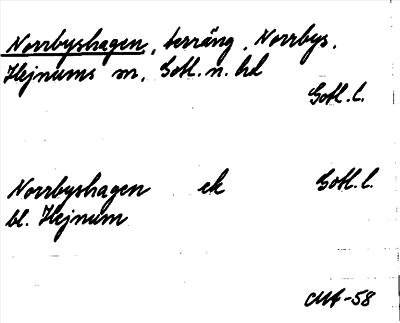 Norrbyshagen, terräng, Norrbys,
Hejnums sn, Gotl. n. hd
Gotl. l.
Norrbyshagen ek Gotl. l.
bl. Hejnum
-58